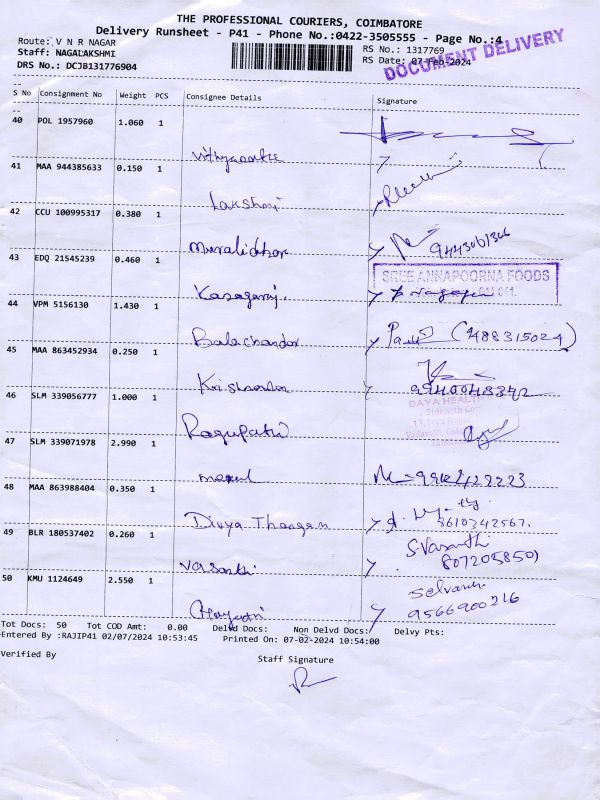 THE PROFESSIONAL COURIERS, COIMBATORE
Delivery Runsheet - P41 - Phone No.:0422-3505555 - Page No.:4
Route: V N R NAGAR RS No.: 1317769
Staff: NAGALAKSHMI RS Date: 07-Feb-2024
DRS No.: DCJB131776904
DOCUMENT DELIVERY
S No Consignment No Weight PCS Consignee Details Signature
40 POL 1957960 1.060 1
41 MAA 944385633 0.150 1
Lakshmi
42 CCU 100995317 0.380 1
Muralidhar 9443061366
43 EDQ 21545239 0.460 1
SREE ANNAPOORNA FOODS
44 VPM 5156130 1.430 1
Balachandar (9488315024)
45 MAA 863452934 0.250 1
9940048342
46 SLM 339056777 1.000 1
DAYA HEALTH
Ragupathi
47 SLM 339071978 2.990 1
48 MAA 863988404 0.350 1
Divya Thangam 8610342567.
49 BLR 180537402 0.260 1
S. Vasanthi
Vasanthi 8072058501
50 KMU 1124649 2.550 1
9566900216
Tot Docs: 50 Tot COD Amt: 0.00 Delvd Docs: Non Delvd Docs: Delvy Pts:
Entered By :RAJIP41 02/07/2024 10:53:45 Printed On: 07-02-2024 10:54:00
Verified By Staff Signature